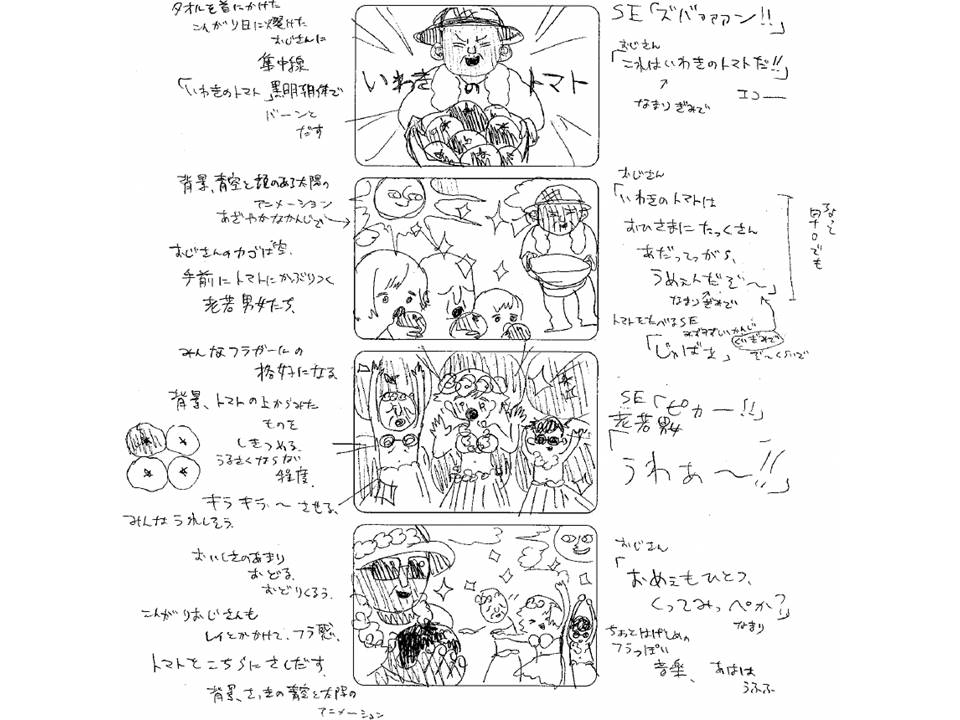 タオルを首にかけた
こんがり日に焼けた
おじさんに
集中線
「いわきのトマト」黒明朝体で
バーンと
だす
いわきのトマト
SE「ズバァァァン!!」
おじさん
「これはいわきのトマトだ!!」
なまりぎみで
エコー
背景、青空と顔のある太陽の
アニメーション
あざやかなかんじで
おじさんのカゴは空.
手前にトマトにかぶりつく
老若男女たち.
おじさん
「いわきのトマトは
おひさまにたっくさん
あだってっがら、
うめぇんだぞ〜」
なまりぎみで
トマトをたべるSE
「じゅばぁ」
みんなフラガールの
格好になる
背景、トマトの上からみた
ものを
しきつめる.
うるさくならない
程度.
キラキラ〜させる、
みんなうれしそう.
SE「ピカー!!」
老若男女
「うわぁ〜!!」
おいしさのあまり
おどる.
おどりくるう.
こんがりおじさんも
レイとかかけて、フラ感、
トマトをこちらにさしだす.
背景、さっきの青空と太陽の
アニメーション
おじさん
「おめぇもひとつ、
くってみっぺか?」
なまり
ちょっとはげしめの
フラっぽい
音楽、
あはは
うふふ